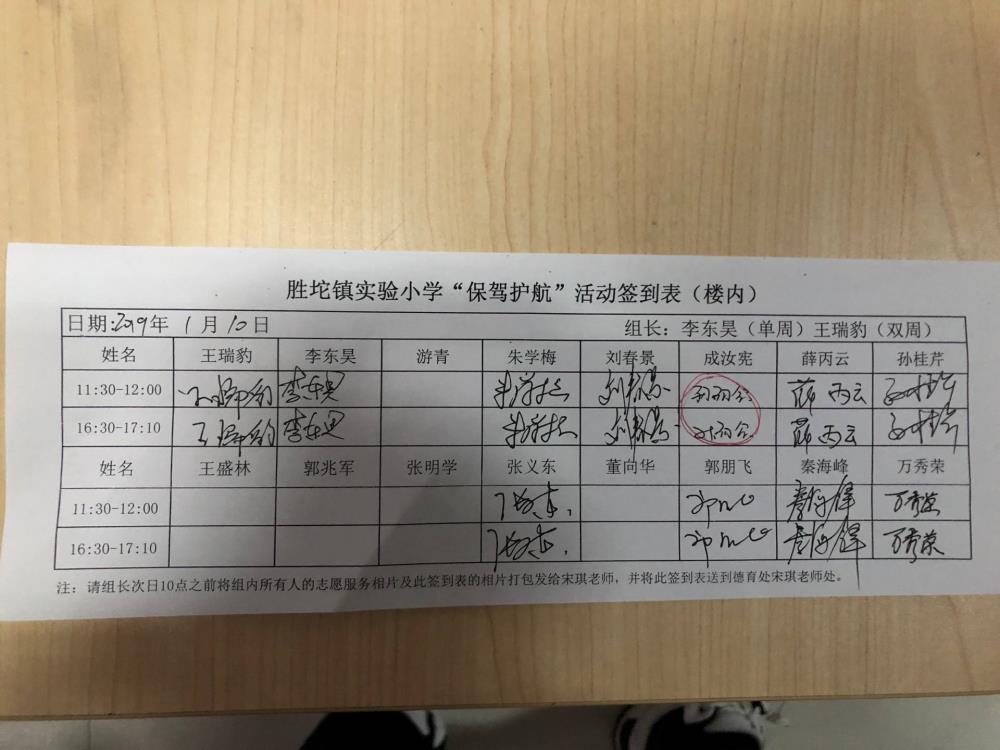 胜坨镇实验小学“保驾护航”活动签到表（楼内）
日期:2019年 1月10日 组长：李东昊（单周）王瑞豹（双周）
姓名 王瑞豹 李东昊 游青 朱学梅 刘春景 成汝宪 薛丙云 孙桂芹
11:30-12:00 王瑞豹 李东昊 朱学梅 刘春景 薛丙云 孙桂芹
16:30-17:10 王瑞豹 李东昊 朱学梅 刘春景 薛丙云 孙桂芹
姓名 王盛林 郭兆军 张明学 张义东 董向华 郭朋飞 秦海峰 万秀荣
11:30-12:00 张义东 秦海峰 万秀荣
16:30-17:10 张义东 秦海峰 万秀荣
注：请组长次日10点之前将组内所有人的志愿服务相片及此签到表的相片打包发给宋琪老师，并将此签到表送到德育处宋琪老师处。